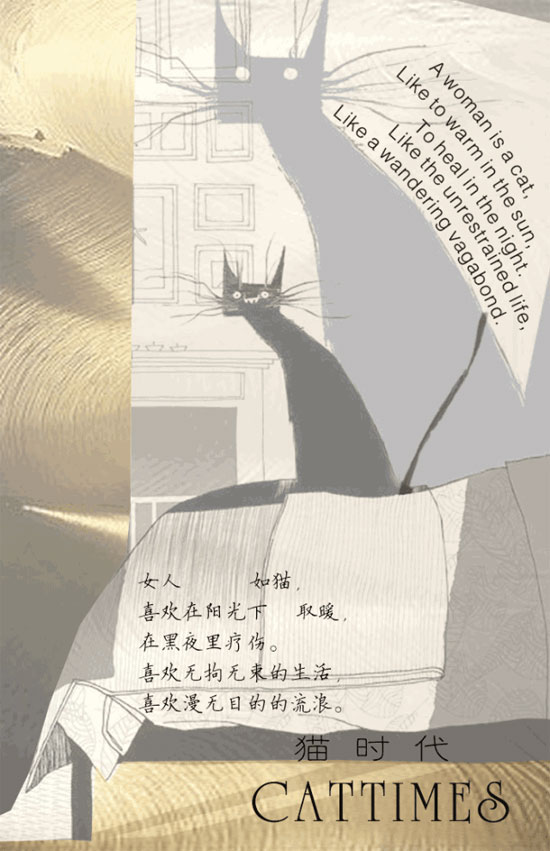 A woman is a cat,
Like to warm in the sun,
To heal in the night.
Like the unrestrained life,
Like a wandering vagabond.
女人 如猫,
喜欢在阳光下 取暖,
在黑夜里疗伤。
喜欢无拘无束的生活,
喜欢漫无目的的流浪。
猫时代
CATTIMES